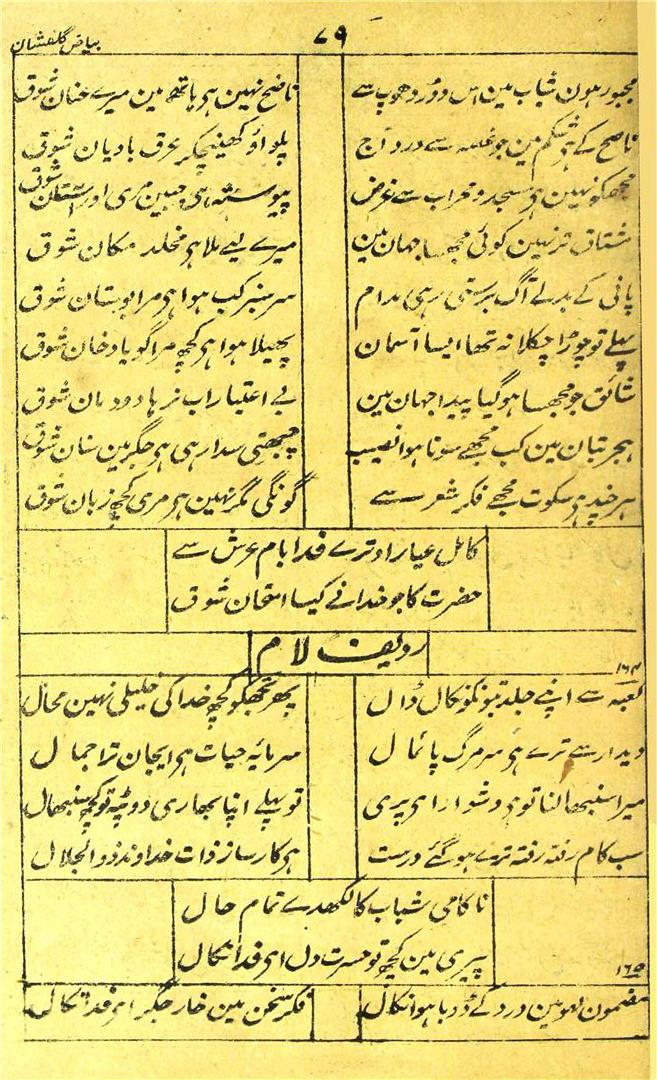 ۷۹
بیاض گلفشان
مجبور ہون شباب مین اس دوڑ دھوپ سے
ناصح نہین ہی ہاتھ مین میرے عنان شوق
ناصح کے ہی شکم مین جو غصہ سے درد آج
پلواؤ کھینچکر عرق بادیان شوق
مجھکو نہین ہی مسجد و محراب سے غرض
پیوستہ ہی جبین مری اور آستان شوق
مشتاق تر نہین کوئی مجھسا جہان مین
میرے لیے ملا ہی مخلد مکان شوق
پانی کے بدلے آگ برستی رہی مدام
سرسبز کب ہوا ہی مرا بوستان شوق
پہلے تو چوڑا چکلا نہ تھا ایسا آسمان
پھیلا ہوا ہی کچھ مرا گویا دخان شوق
شائق جو مجھسا ہو گیا پیدا جہان مین
بے اعتبار اب نرہا دودمان شوق
ہجر بتان مین کب مجھے سونا ہوا نصیب
چبھتی سدا رہی ہی جگر مین سنان شوق
ہر چند ہی سکوت مجھے فکر شعر سے
گونگی مگر نہین ہی مری کچھ زبان شوق
کامل عیار اوترے فدا بام عرش سے
حضرت کا جو خدا نے کیسا امتحان شوق
ردیف لام
۱۶۴
کعبہ سے اپنے جلد بتونکو نکال ڈال
پھر تجھکو کچھ خدا کی خلیلی نہین محال
دیدار سے ترے ہی سر مرگ پائمال
سرمایہ حیات ہی ایجان ترا جمال
میرا سنبھالنا تو ہی دشوار ای پری
تو پہلے اپنا بھاری دوپٹہ تو کچھ سنبھال
سب کام رفتہ رفتہ ترے ہو گئے درست
ہی کارساز ذات خداوند ذوالجلال
ناکامی شباب کا لکھدے تمام حال
پیری مین کچھ تو حسرت دل ای فدا نکال
۱۶۵
مضمون لہو مین درد کے ڈوبا ہوا نکال
فکر سخن مین خار جگر ای فدا نکال